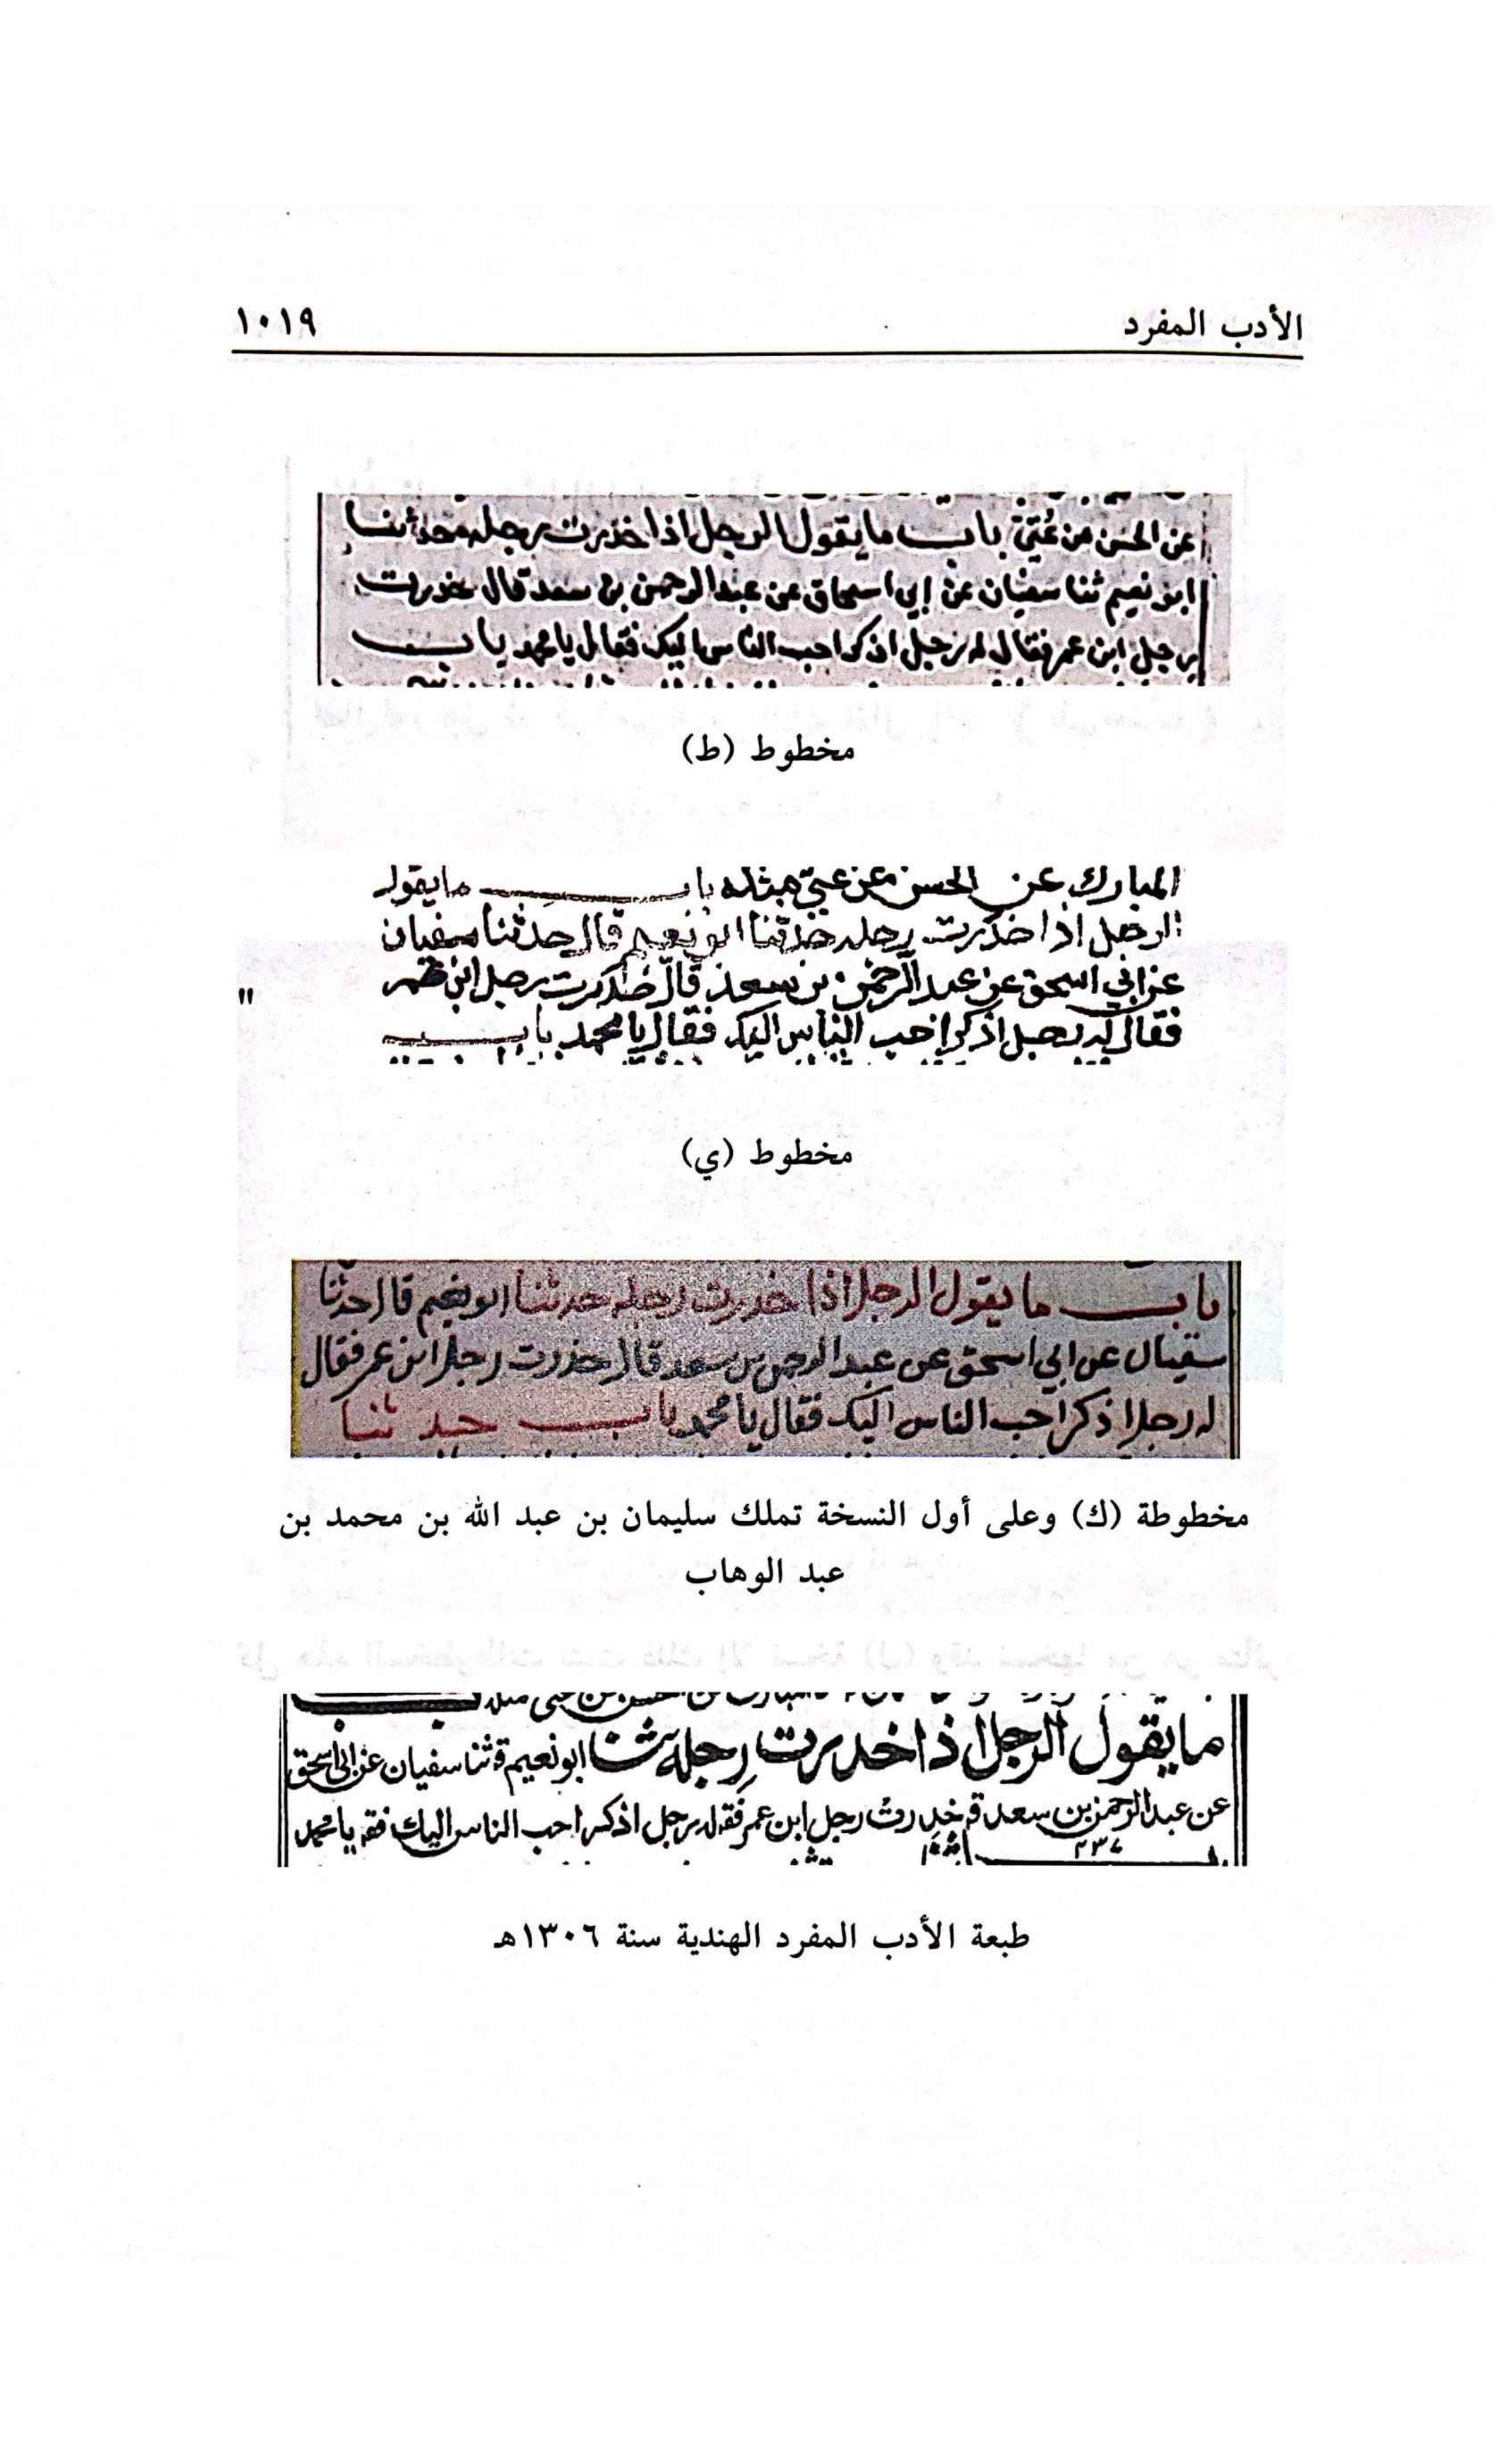 الأدب المفرد ١٠١٩
عن الحسن عن عُتَيّ باب ما يقول الرجل اذا خدرت رجله حدثنا
ابو نعيم ثنا سفيان عن إبي اسحاق عن عبد الرحمن بن سعد قال خدرت
رجل ابن عمر فقال له رجل اذكر احب الناس اليك فقال يا محمد باب
مخطوط (ط)
المبارك عن الحسن عن عتي مثله باب ما يقول
الرجل اذا خدرت رجله حدثنا ابو نعيم قال حدثنا سفيان
عن ابي اسحق عن عبد الرحمن بن سعد قال خدرت رجل ابن عمر
فقال له رجل اذكر احب الناس اليك فقال يا محمد باب
مخطوط (ي)
باب ما يقول الرجل اذا خدرت رجله حدثنا ابو نعيم قال حدثنا
سفيان عن ابي اسحق عن عبد الرحمن بن سعد قال خدرت رجل ابن عمر فقال
له رجل اذكر احب الناس اليك فقال يا محمد باب حدثنا
مخطوطة (ك) وعلى أول النسخة تملك سليمان بن عبد الله بن محمد بن
عبد الوهاب
ما يقول الرجل اذا خدرت رجله ثنا ابو نعيم قثنا سفيان عن ابى اسحق
عن عبد الرحمن بن سعد قـ خدرت رجل ابن عمر فقـ له رجل اذكر احب الناس اليك فقـ يا محمد
٢٣٧
طبعة الأدب المفرد الهندية سنة ١٣٠٦هـ